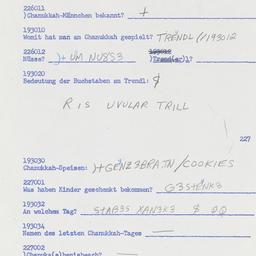 226011
)Chanukkah-Männchen bekannt? +
193010
Womit hat man an Chanukkah gespielt? TRENDL(//193012
226012
Nüsse? )+ UM NUSS3 )Trendler)l?
193020
Bedeutung der Buchstaben am Trendl:
R IS UVULAR TRILL
227
193030
Chanukkah-Speisen: )+GENZ3BRATN/COOKIES
227001
Was haben Kinder geschenkt bekommen? G3STENK3
193032
An welchem Tag? S+AB3S XAN3K3 & QQ
193034
Namen des letzten Chanukkah-Tages
227002